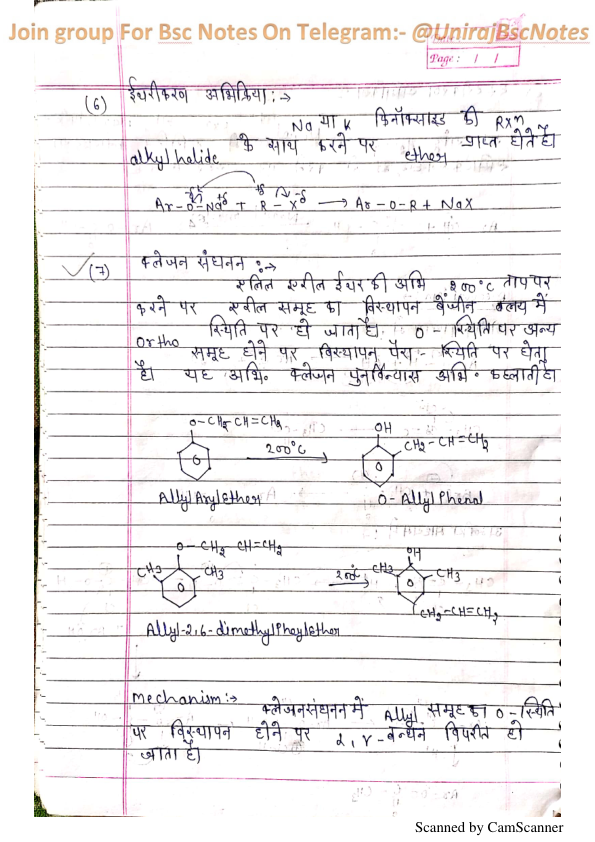 Join group For Bsc Notes On Telegram:- @UnirajBscNotes
Page: 1 1
(6) ईथरीकरण अभिक्रिया :→
Na या K फिनॉक्साइड की RXn
alkyl halide के साथ करने पर ether प्राप्त होते है।
Ar-O-Na + R-X → Ar-O-R + NaX
(7) क्लेजन संघनन :→
एलिल एरील ईथर की अभि. 200°C ताप पर
करने पर एरील समूह का विस्थापन बेंजीन वलय में
Ortho स्थिति पर हो जाता है। O- स्थिति पर अन्य
समूह होने पर विस्थापन पैरा- स्थिति पर होता
है। यह अभि. क्लेजन पुनर्विन्यास अभि. कहलाती है।
O-CH2 CH=CH2
200°C
OH
CH2-CH=CH2
Allyl Aryl Ether
O-Allyl Phenol
O-CH2 CH=CH2
CH3 CH3
200°
OH
CH3 CH3
CH2-CH=CH2
Allyl-2,6-dimethyl Pheyl Ether
Mechanism :→
क्लेजन संघनन में Allyl समूह का O-स्थिति
पर विस्थापन होने पर α, γ-बन्धन विपरीत हो
जाता है।
Scanned by CamScanner